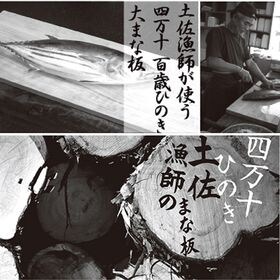 土佐漁師が使う
四万十 百歳ひのき
大まな板
四万十
ひのき
土佐
漁師の
まな板